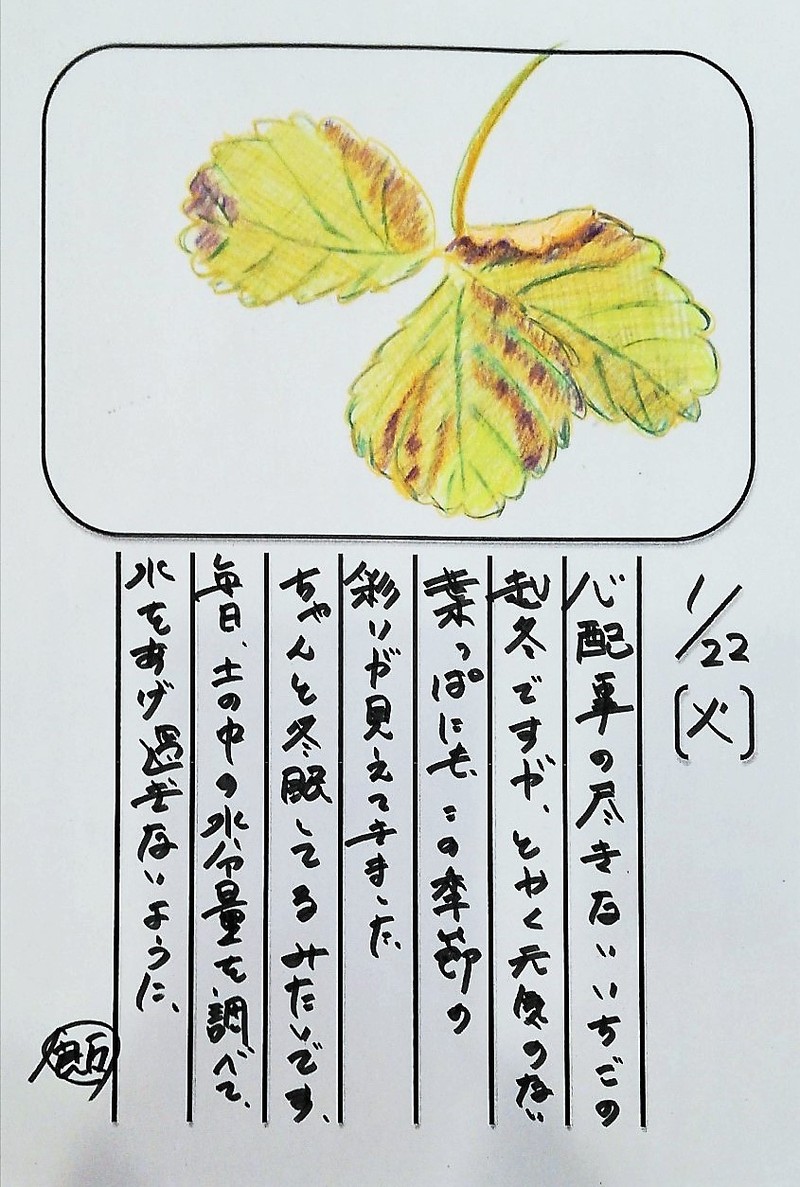 1/22
(火)
心配事の尽きないいちごの
越冬ですが、とかく元気のない
葉っぱにも、この季節の
彩りが見えてきました。
ちゃんと冬眠してるみたいです。
毎日、土の中の水分量を調べて、
水をあげ過ぎないように、